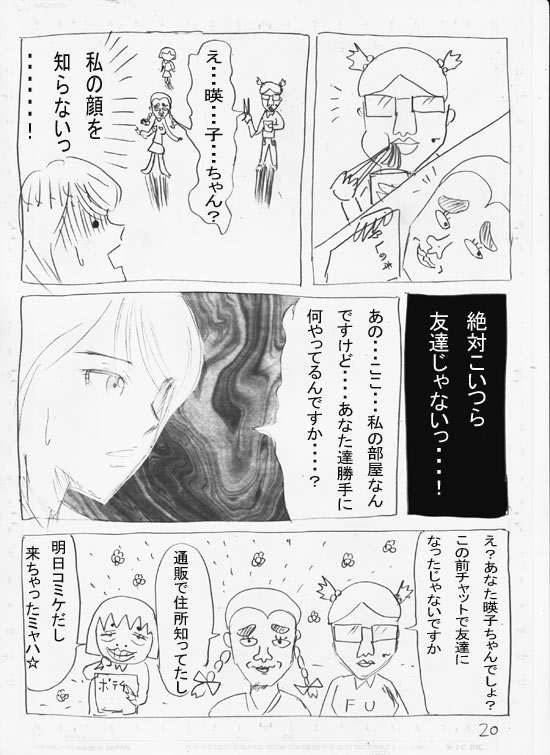 え・・・暎・・・子・・・ちゃん?
私の顔を
知らないっ
・・・・・・・・!
絶対こいつら
友達じゃないっ・・・・!
あの・・・ここ・・・私の部屋なん
ですけど・・・・あなた達勝手に
何やってるんですか・・・・?
え?あなた暎子ちゃんでしょ?
この前チャットで友達に
なったじゃないですか
FU
通販で住所知ってたし
明日コミケだし
来ちゃったミャハ☆
ポテチ
20